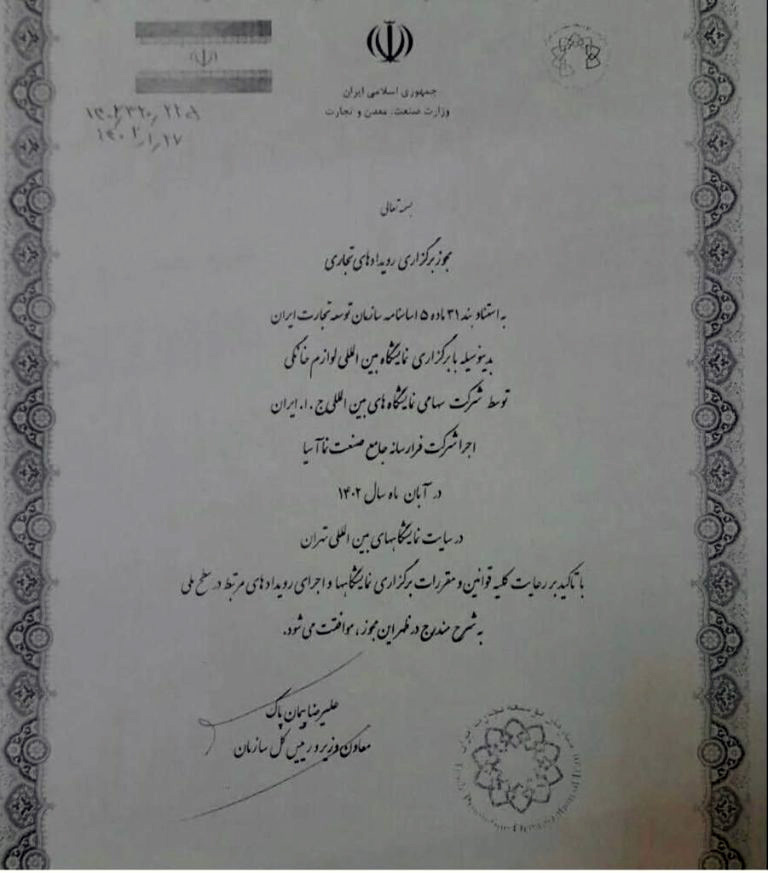 جمهوری اسلامی ایران
وزارت صنعت، معدن و تجارت
۱۴۰۲/۱/۲۷
بسمه تعالی
مجوز برگزاری رویدادهای تجاری
به استناد بند ۳۱ ماده ۵ اساسنامه سازمان توسعه تجارت ایران
بدینوسیله با برگزاری نمایشگاه بین المللی لوازم خانگی
توسط شرکت سهامی نمایشگاه های بین المللی ج.ا.ایران
اجرا شرکت فرارسانه جامع صنعت نما آسیا
در آبان ماه سال ۱۴۰۲
در سایت نمایشگاههای بین المللی تهران
با تاکید بر رعایت کلیه قوانین و مقررات برگزاری نمایشگاهها و اجرای رویدادهای مرتبط در سطح ملی
به شرح مندرج در ظهر این مجوز، موافقت می شود.
علیرضا پیمان پاک
معاون وزیر و رییس کل سازمان